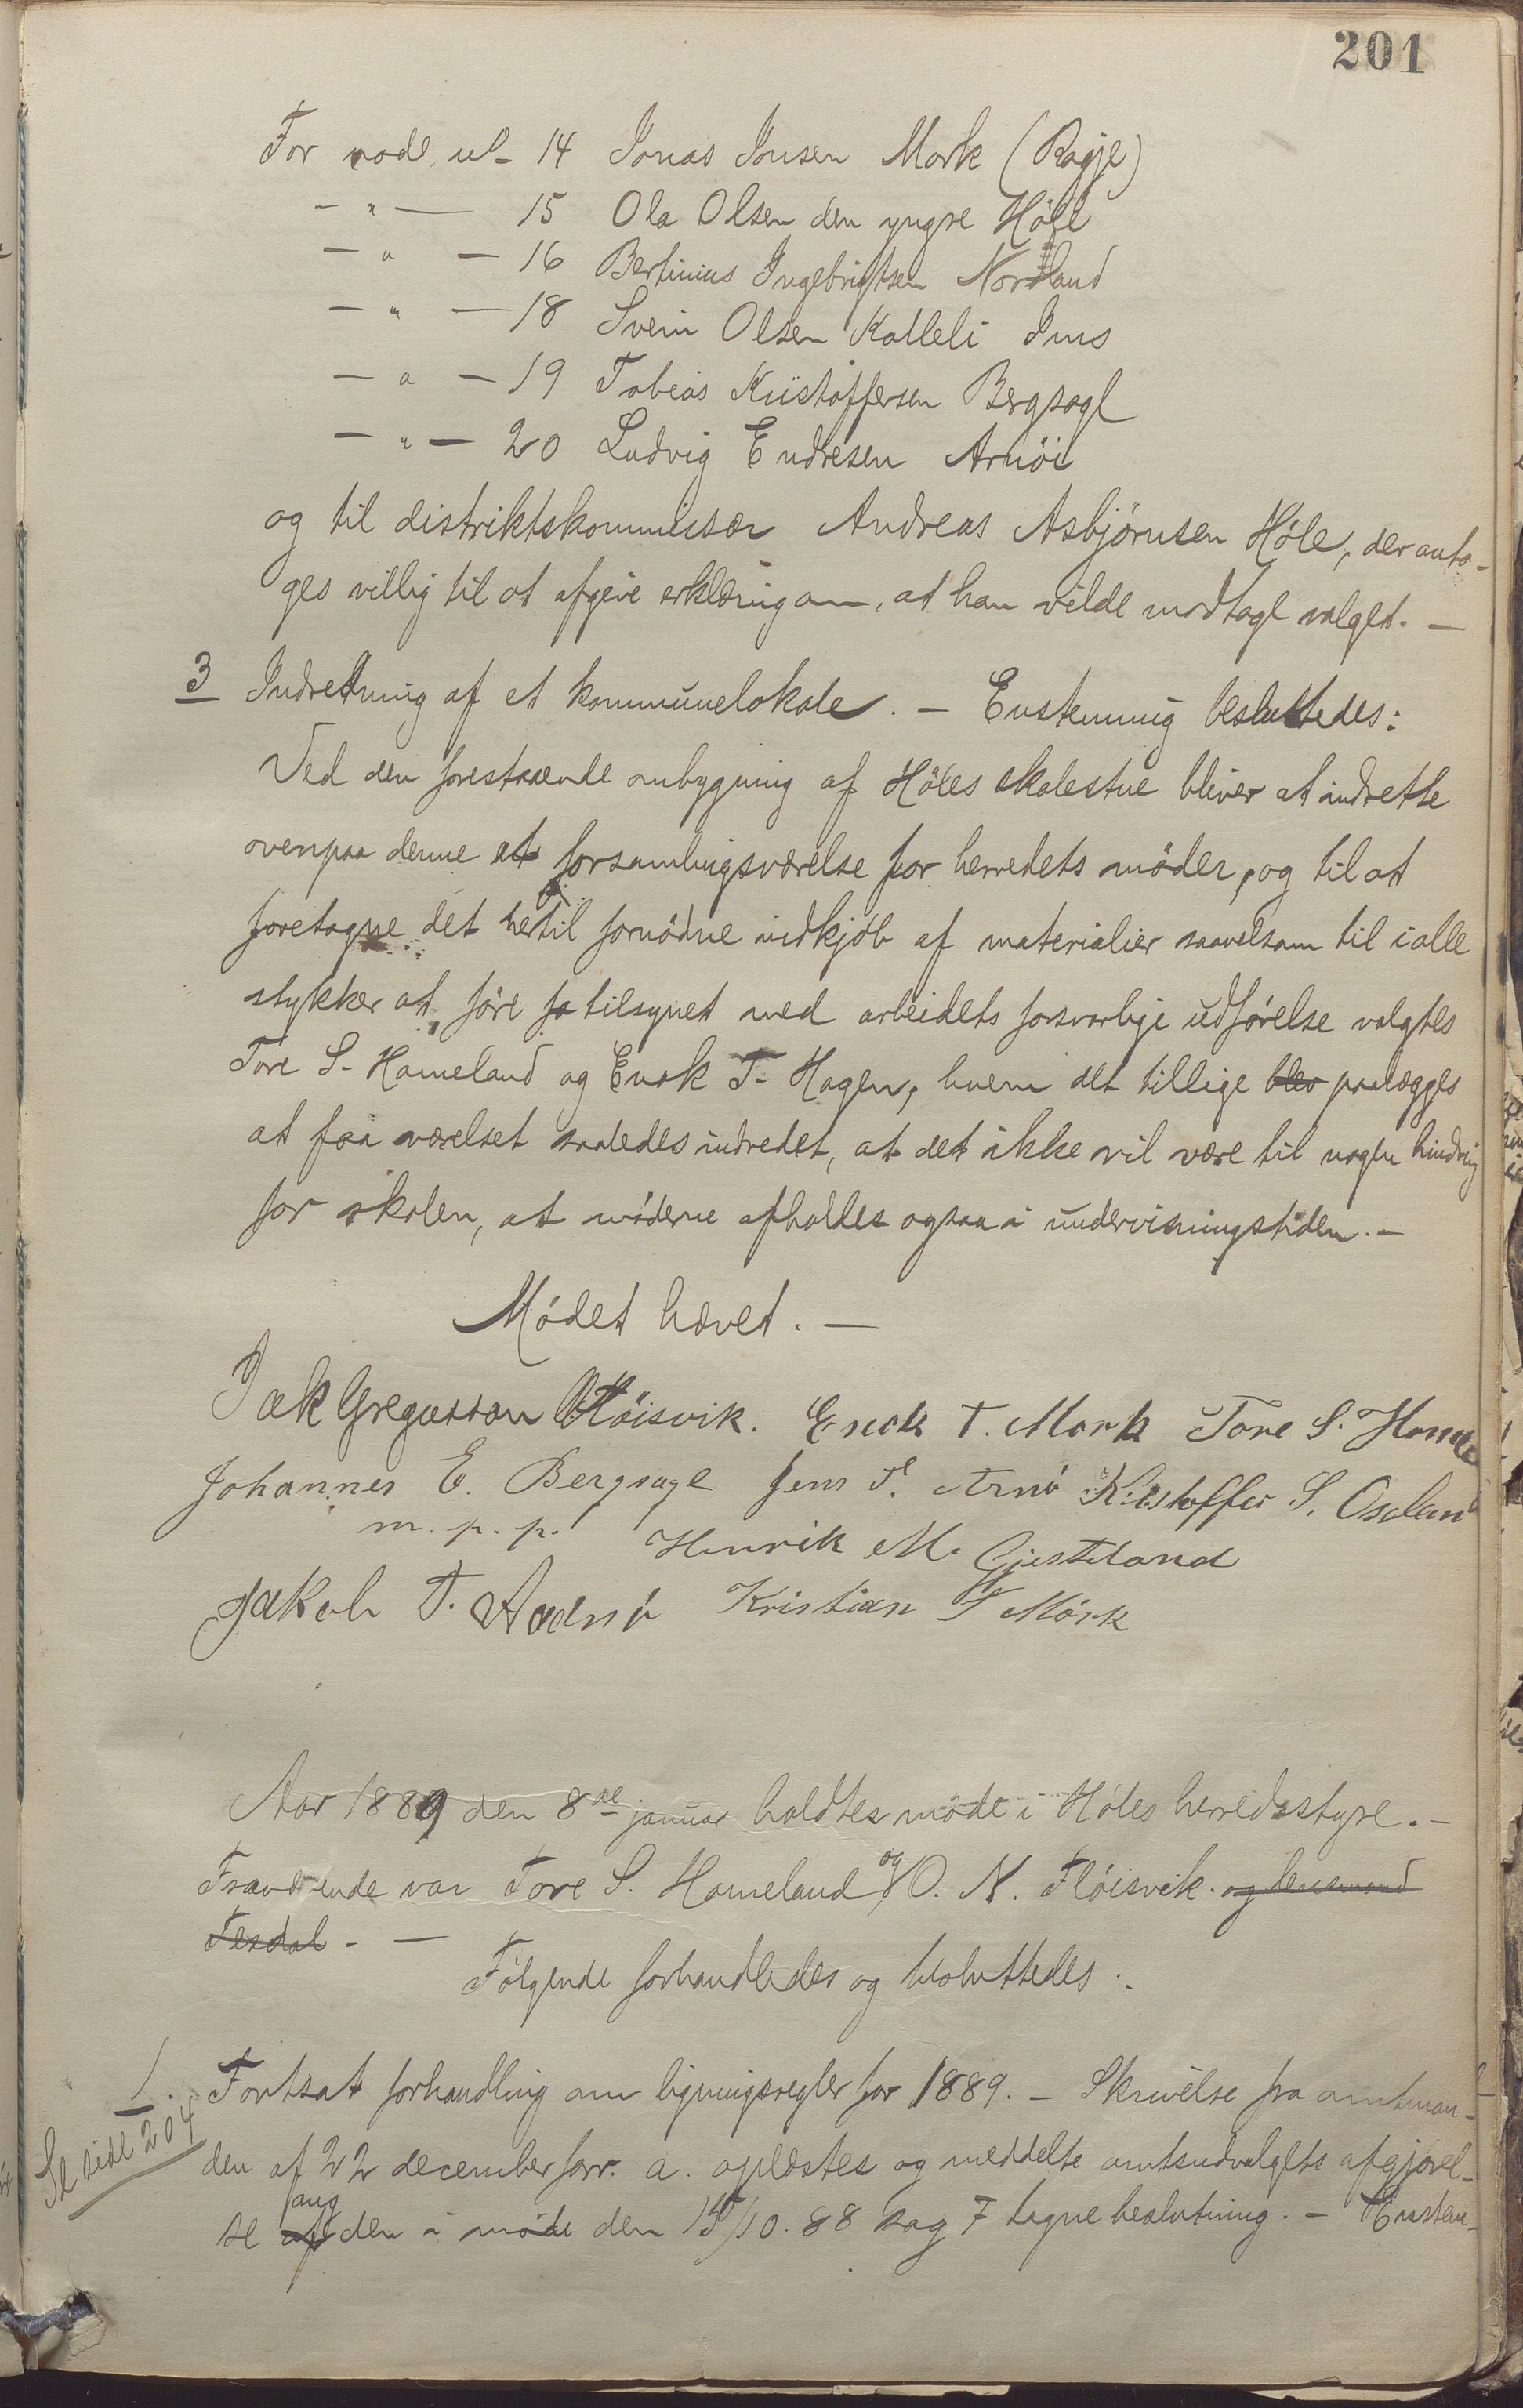 201
For rode nl. 14 Jonas Jonsen Mørk (Ragje)
— " — 15 Ola Olsen den yngre Høle
— " — 16 Bertinius Ingebrigtsen Nordland
— " — 18 Svein Olsen Kalleli Ims
— " — 19 Tobias Kristoffersen Bergsagl
— " — 20 Ludvig Endresen Arnöi
og til distriktskommissær Andreas Asbjörnsen Höle, der anto-
ges villig til at afgive erklæring om, at han vilde modtage valget. —
3 Indredning af et kommunelokale. — Enstemmig besluttedes:
Ved den forestaaende ombygning af Höles skolestue bliver at indrette
ovenpaa denne et forsamlingsværelse for herredets möder, og til at
foretagne det hertil fornödne indkjöb af materialier saavelsom til i alle
stykker at före fo tilsynet med arbeidets forsvarlige udförelse valgtes
Tore S. Hameland og Enok T. Hagen, hvem det tillige blev paalægges
at faa værelset saaledes indredet, at det ikke vil være til nogen hindring
for skolen, at möderne afholdes ogsaa i undervisningstiden. —
Mödet hævet. —
Jak Gregersson Höisvik. Enok T. Mørk Tore S. Hamela
Johannes E. Bergsagl Jens T. Arnö Kristoffer S. Osland
m. p. p. Henrik M. Gjesteland
Jakob T. Aadnö Kristian T Mörk
Aar 1889 den 8de januar holdtes möde i Höles herredsstyre. —
Fraværende var Tore S. Hameland og O. N. Flöisvik. og lensmand
Tesdal. —
Fölgende forhandledes og besluttedes:
1. Fortsat forhandling om ligningsregler for 1889. — Skrivelse fra amtman-
Se side 204
den af 22 december forr. a. oplæstes og meddelte amtsudvalgets afgjörel-
se af ang den i möde den 15/10. 88 sag 7 tagne beslutning. — Enstem-